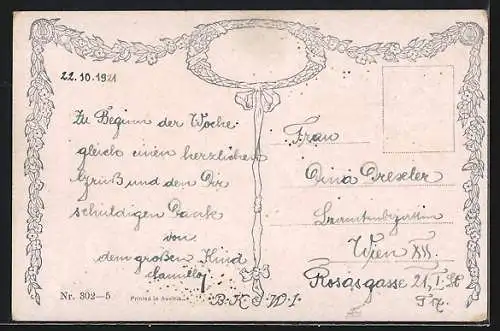 22.10.1921
Zu Beginn der Woche
gleich einen herzlichen
Gruß und den Dir
schuldigen Dank
von
dem großen Kind
Camillo
Frau
Dina Drexler
Beamtensgattin
Wien XII.
Rosasgasse 21, I. St
T 7.
Nr. 302—5
Printed in Austria
B.K.W.I.